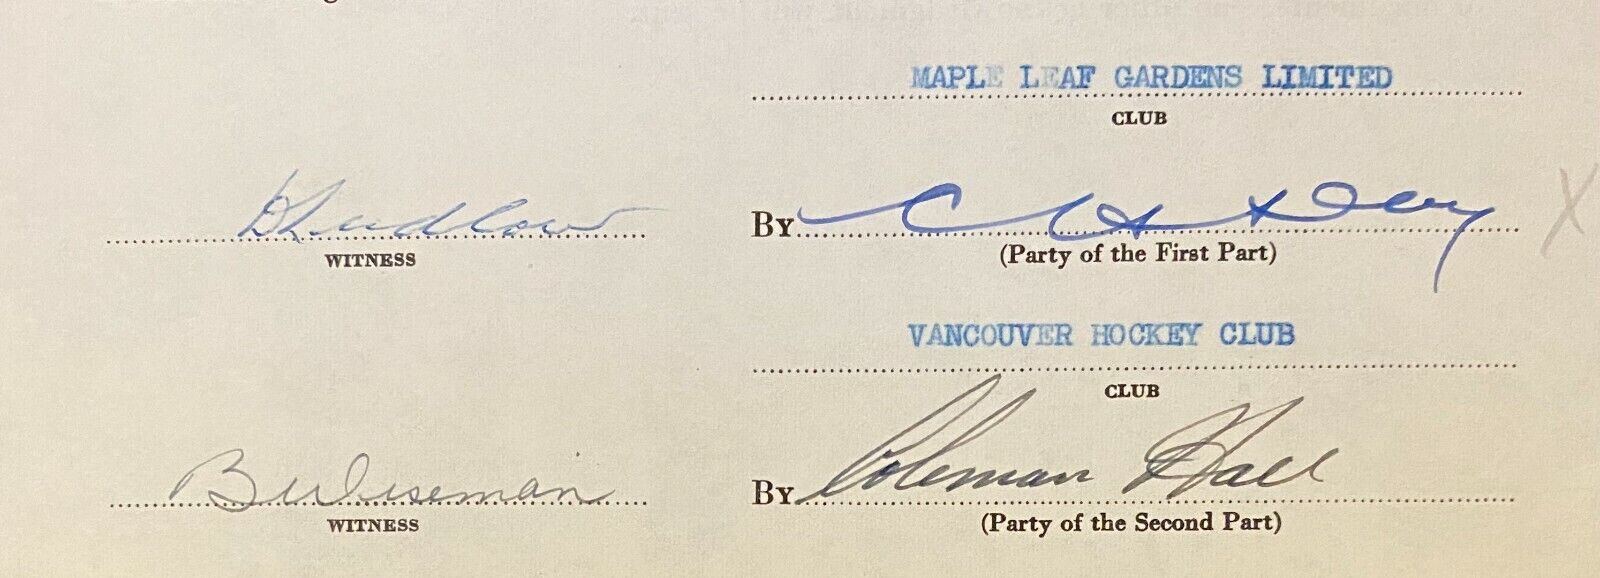 MAPLE LEAF GARDENS LIMITED
CLUB
WITNESS
By
(Party of the First Part)
X
VANCOUVER HOCKEY CLUB
CLUB
B Wiseman
WITNESS
By Coleman Hall
(Party of the Second Part)